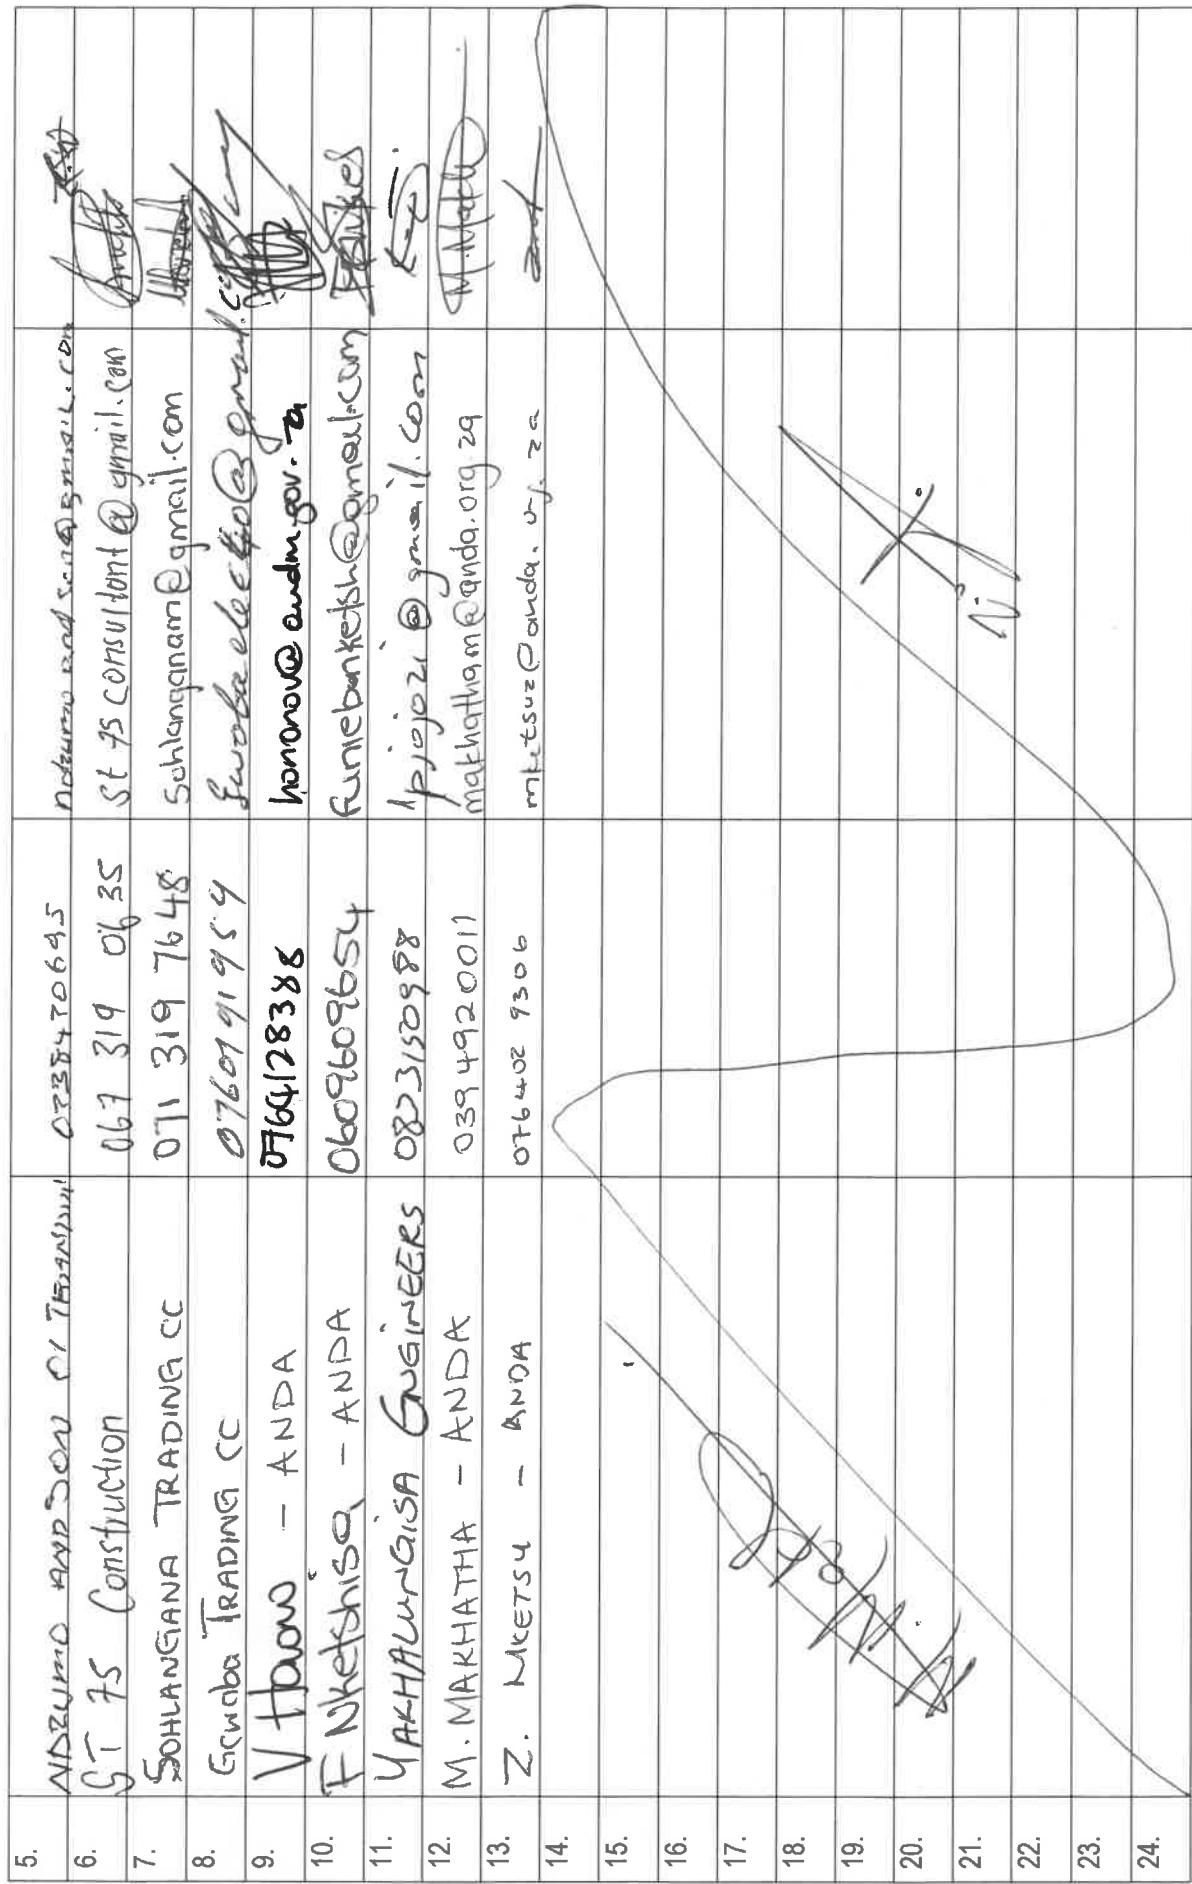 5. NDZUMO AND SON 0738470695 ndzumo and son@gmail.com
6. ST 75 Construction 067 319 0635 st 75 consultant@gmail.com
7. SOHLANGANA TRADING CC 071 319 7648 Sohlanganam@gmail.com
8. Gcwaba TRADING CC 0760191954
9. V Honono - ANDA 0764128388 hononov@andm.gov.za
10. F Nketshisa - ANDA 0609609654 funiebanketsh@gmail.com
11. YAKHALUNGISA ENGINEERS 0823150988 pjojozi@gmail.com
12. M. MAKHATHA - ANDA 0394920011 makhatham@anda.org.za M.Makh
13. Z. MKETSU - ANDA 076402 9306 mketsuz@anda.org.za
14.
15.
16.
17.
18.
19.
20.
21.
22.
23.
24.